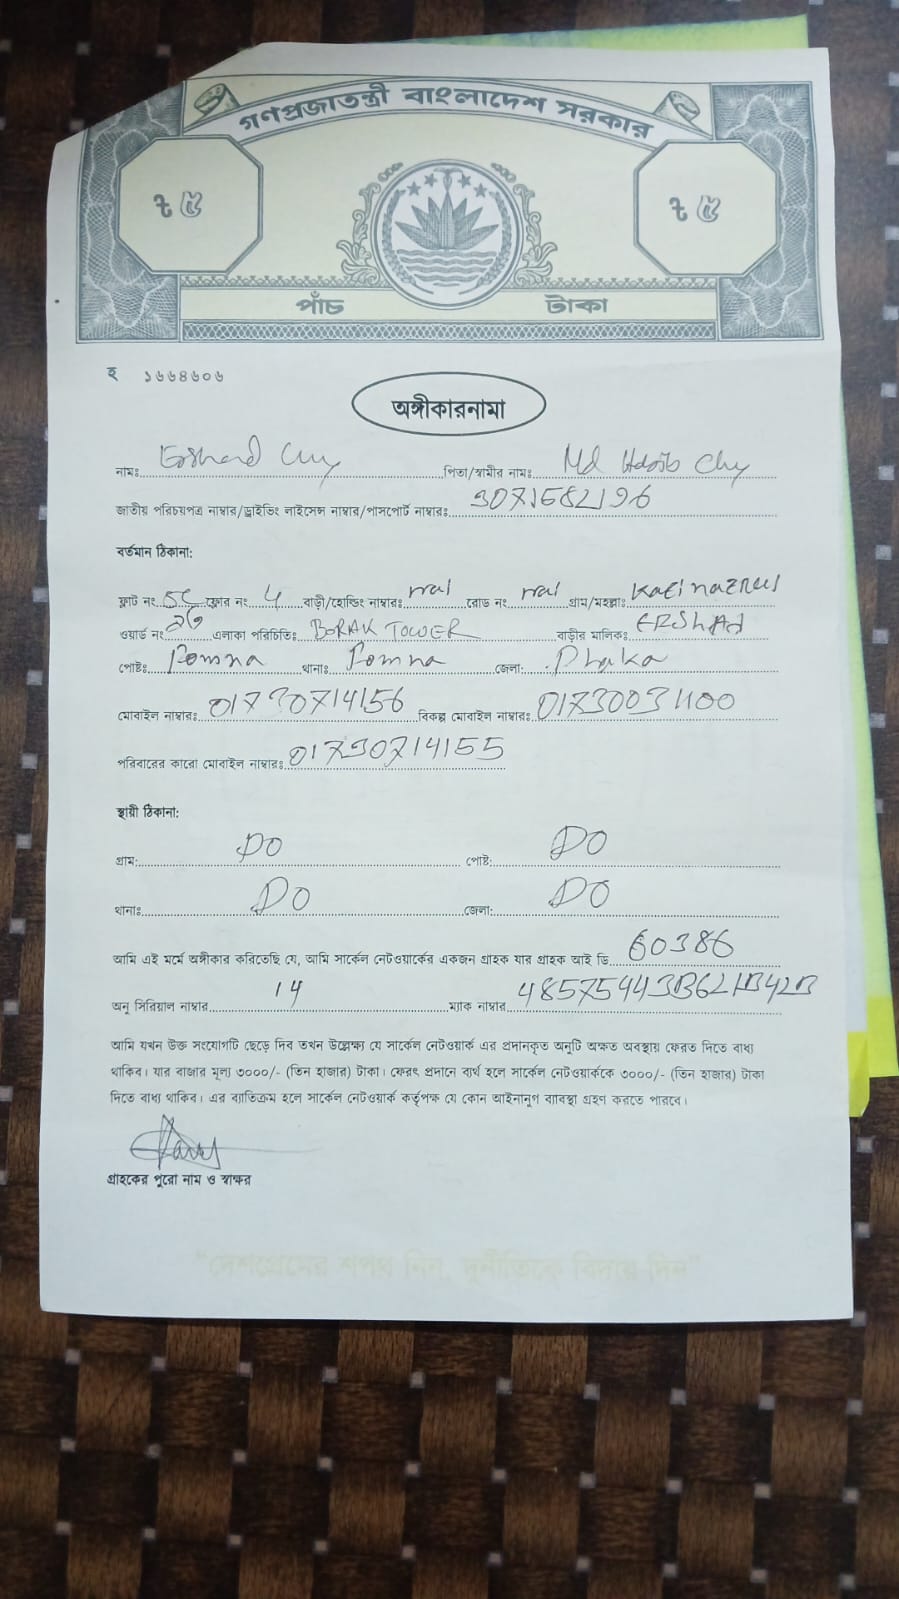 গণপ্রজাতন্ত্রী বাংলাদেশ সরকার
৳ ৫ ৳ ৫
পাঁচ টাকা
হ ১৬৬৪৬০৬
অঙ্গীকারনামা
নামঃ পিতা/স্বামীর নামঃ Md Habib Chy
জাতীয় পরিচয়পত্র নাম্বার/ড্রাইভিং লাইসেন্স নাম্বার/পাসপোর্ট নাম্বারঃ
বর্তমান ঠিকানা:
ফ্লাট নং ফ্লোর নং 4 বাড়ী/হোল্ডিং নাম্বারঃ রোড নং গ্রাম/মহল্লাঃ Kazi nazrul
ওয়ার্ড নং এলাকা পরিচিতিঃ BORAK TOWER বাড়ীর মালিকঃ ERSHAD
পোষ্টঃ Romna থানাঃ Romna জেলা: Dhaka
মোবাইল নাম্বারঃ 01730714156 বিকল্প মোবাইল নাম্বারঃ
পরিবারের কারো মোবাইল নাম্বারঃ 01730714155
স্থায়ী ঠিকানা:
গ্রাম: DO পোষ্ট: DO
থানাঃ DO জেলা: DO
আমি এই মর্মে অঙ্গীকার করিতেছি যে, আমি সার্কেল নেটওয়ার্কের একজন গ্রাহক যার গ্রাহক আই ডি 60386
অনু সিরিয়াল নাম্বার 14 ম্যাক নাম্বার
আমি যখন উক্ত সংযোগটি ছেড়ে দিব তখন উল্লেক্ষ্য যে সার্কেল নেটওয়ার্ক এর প্রদানকৃত অনুটি অক্ষত অবস্থায় ফেরত দিতে বাধ্য
থাকিব। যার বাজার মূল্য ৩০০০/- (তিন হাজার) টাকা। ফেরৎ প্রদানে ব্যর্থ হলে সার্কেল নেটওয়ার্ককে ৩০০০/- (তিন হাজার) টাকা
দিতে বাধ্য থাকিব। এর ব্যাতিক্রম হলে সার্কেল নেটওয়ার্ক কর্তৃপক্ষ যে কোন আইনানুগ ব্যাবস্থা গ্রহণ করতে পারবে।
গ্রাহকের পুরো নাম ও স্বাক্ষর
"দেশপ্রেমের শপথ নিন, দুর্নীতিকে বিদায় দিন"